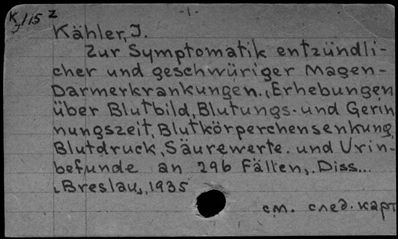 K 7/15 z
-1.
Kähler, J.
Zur Symptomatik entzündli-
cher und geschwüriger Magen-
Darmerkrankungen. (Erhebungen
über Blutbild, Blutungs- und Gerin
nungszeit, Blutkörperchensenkung,
Blutdruck, Säurewerte. und Urin-
befunde an 296 Fällen,. Diss...
(Breslau), 1935
см. след. карт